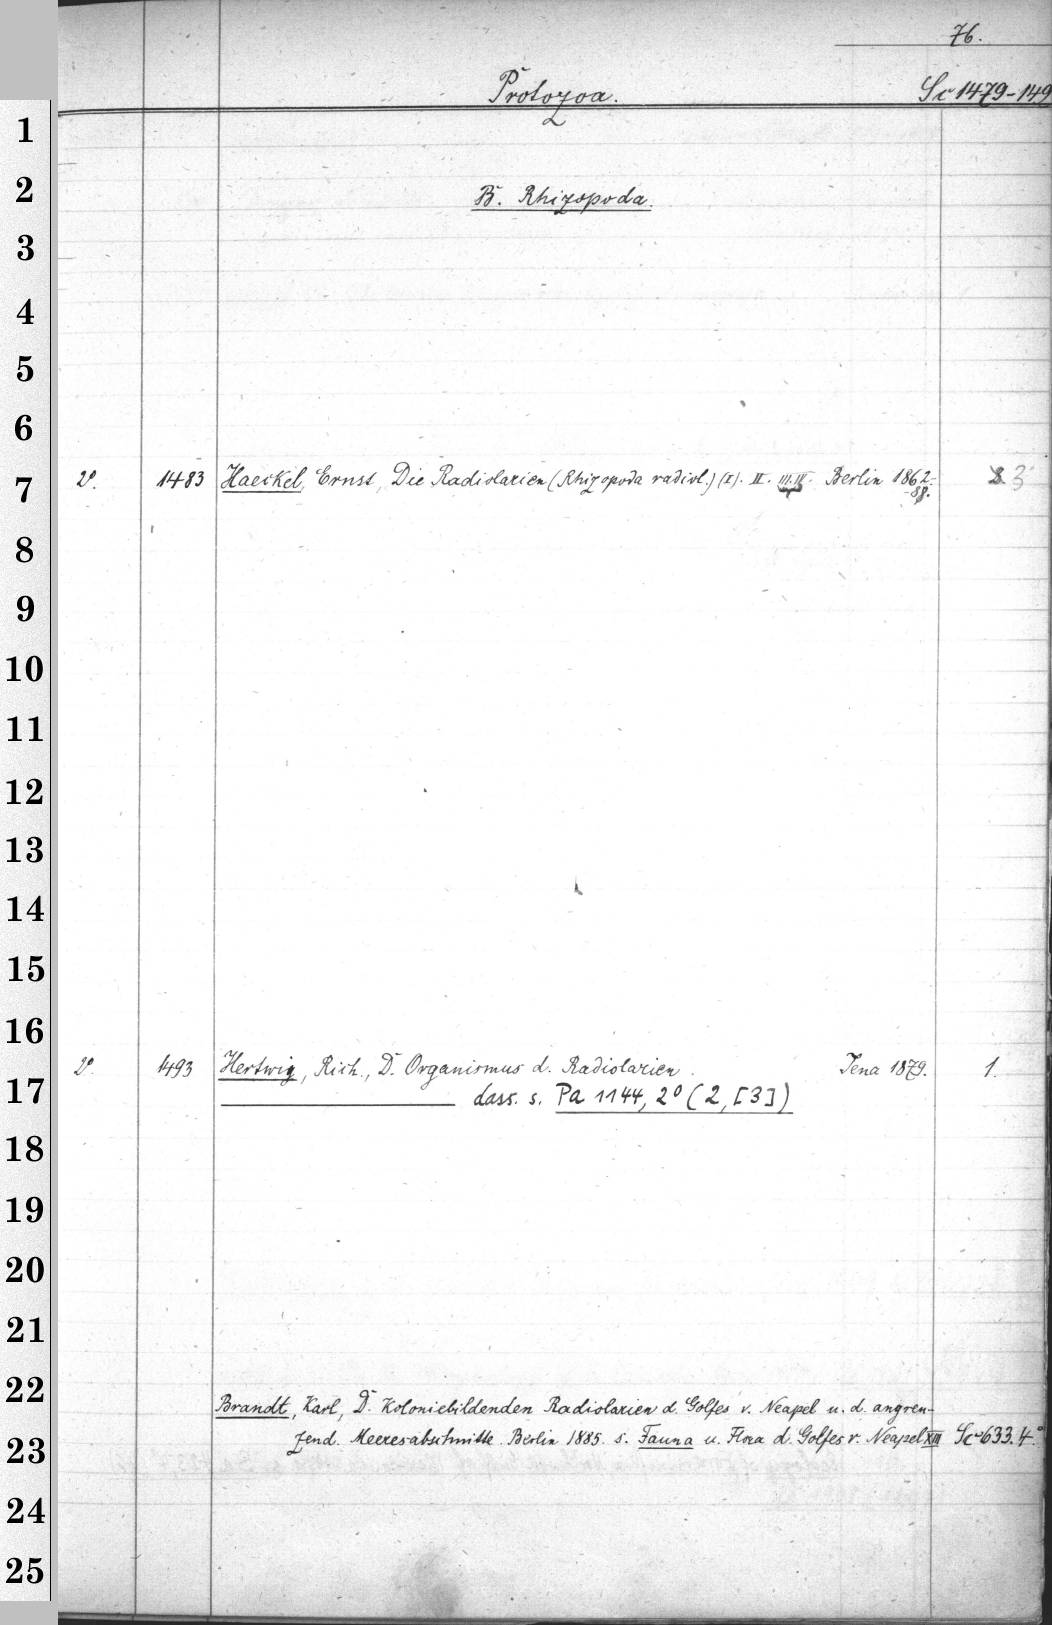 76.
Protozoa. Sc 1479-149
1
2 B. Rhizopoda.
3
4
5
6
7 2°. 1483 Haeckel, Ernst, Die Radiolarien (Rhizopoda radiol.) (I). II. III. IV. Berlin 1862-
-88. 3
8
9
10
11
12
13
14
15
16
2°. 1493 Hertwig, Rich., D. Organismus d. Radiolarien. Jena 1879. 1.
17 dass. s. Pa 1144, 2° (2,[3])
18
19
20
21
22 Brandt, Karl, D. Koloniebildenden Radiolarien d. Golfes v. Neapel u. d. angren-
23 zend. Meeresabschnitte. Berlin 1885. s. Fauna u. Flora d. Golfes v. Neapel XIII Sc 633.4°
24
25